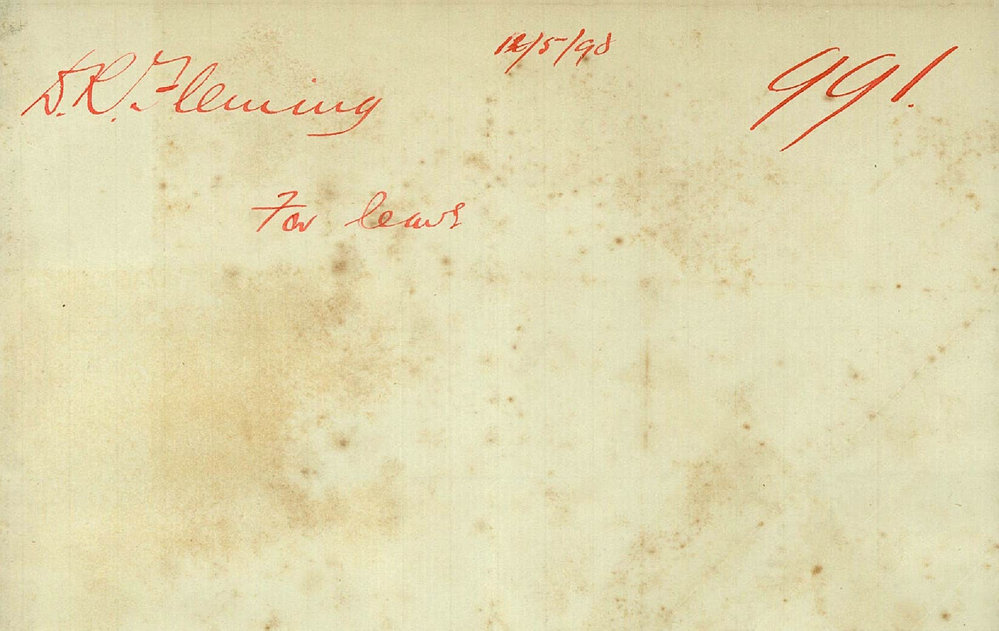 12/5/98
991.
D.R. Fleming
For leave